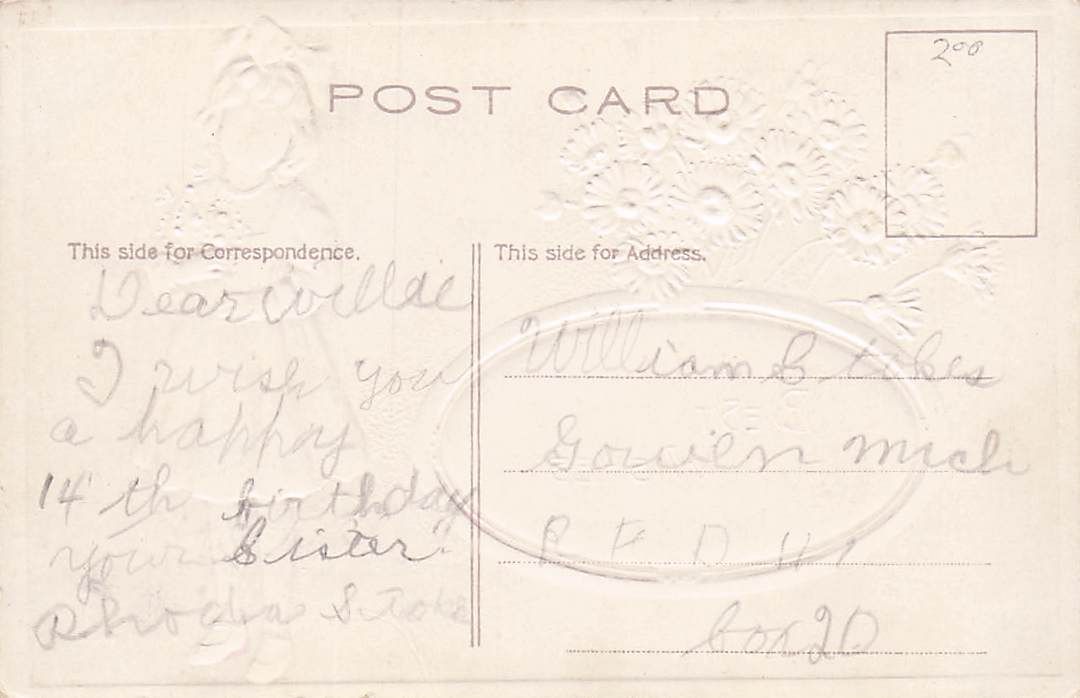 POST CARD
2.00
This side for Correspondence.
This side for Address.
Dear Willdie
I wish you
a happy
14 th birthday
your Sister.
Rhodia Stokes
William Stokes
Gowen Mich
R F D # 1
box 20